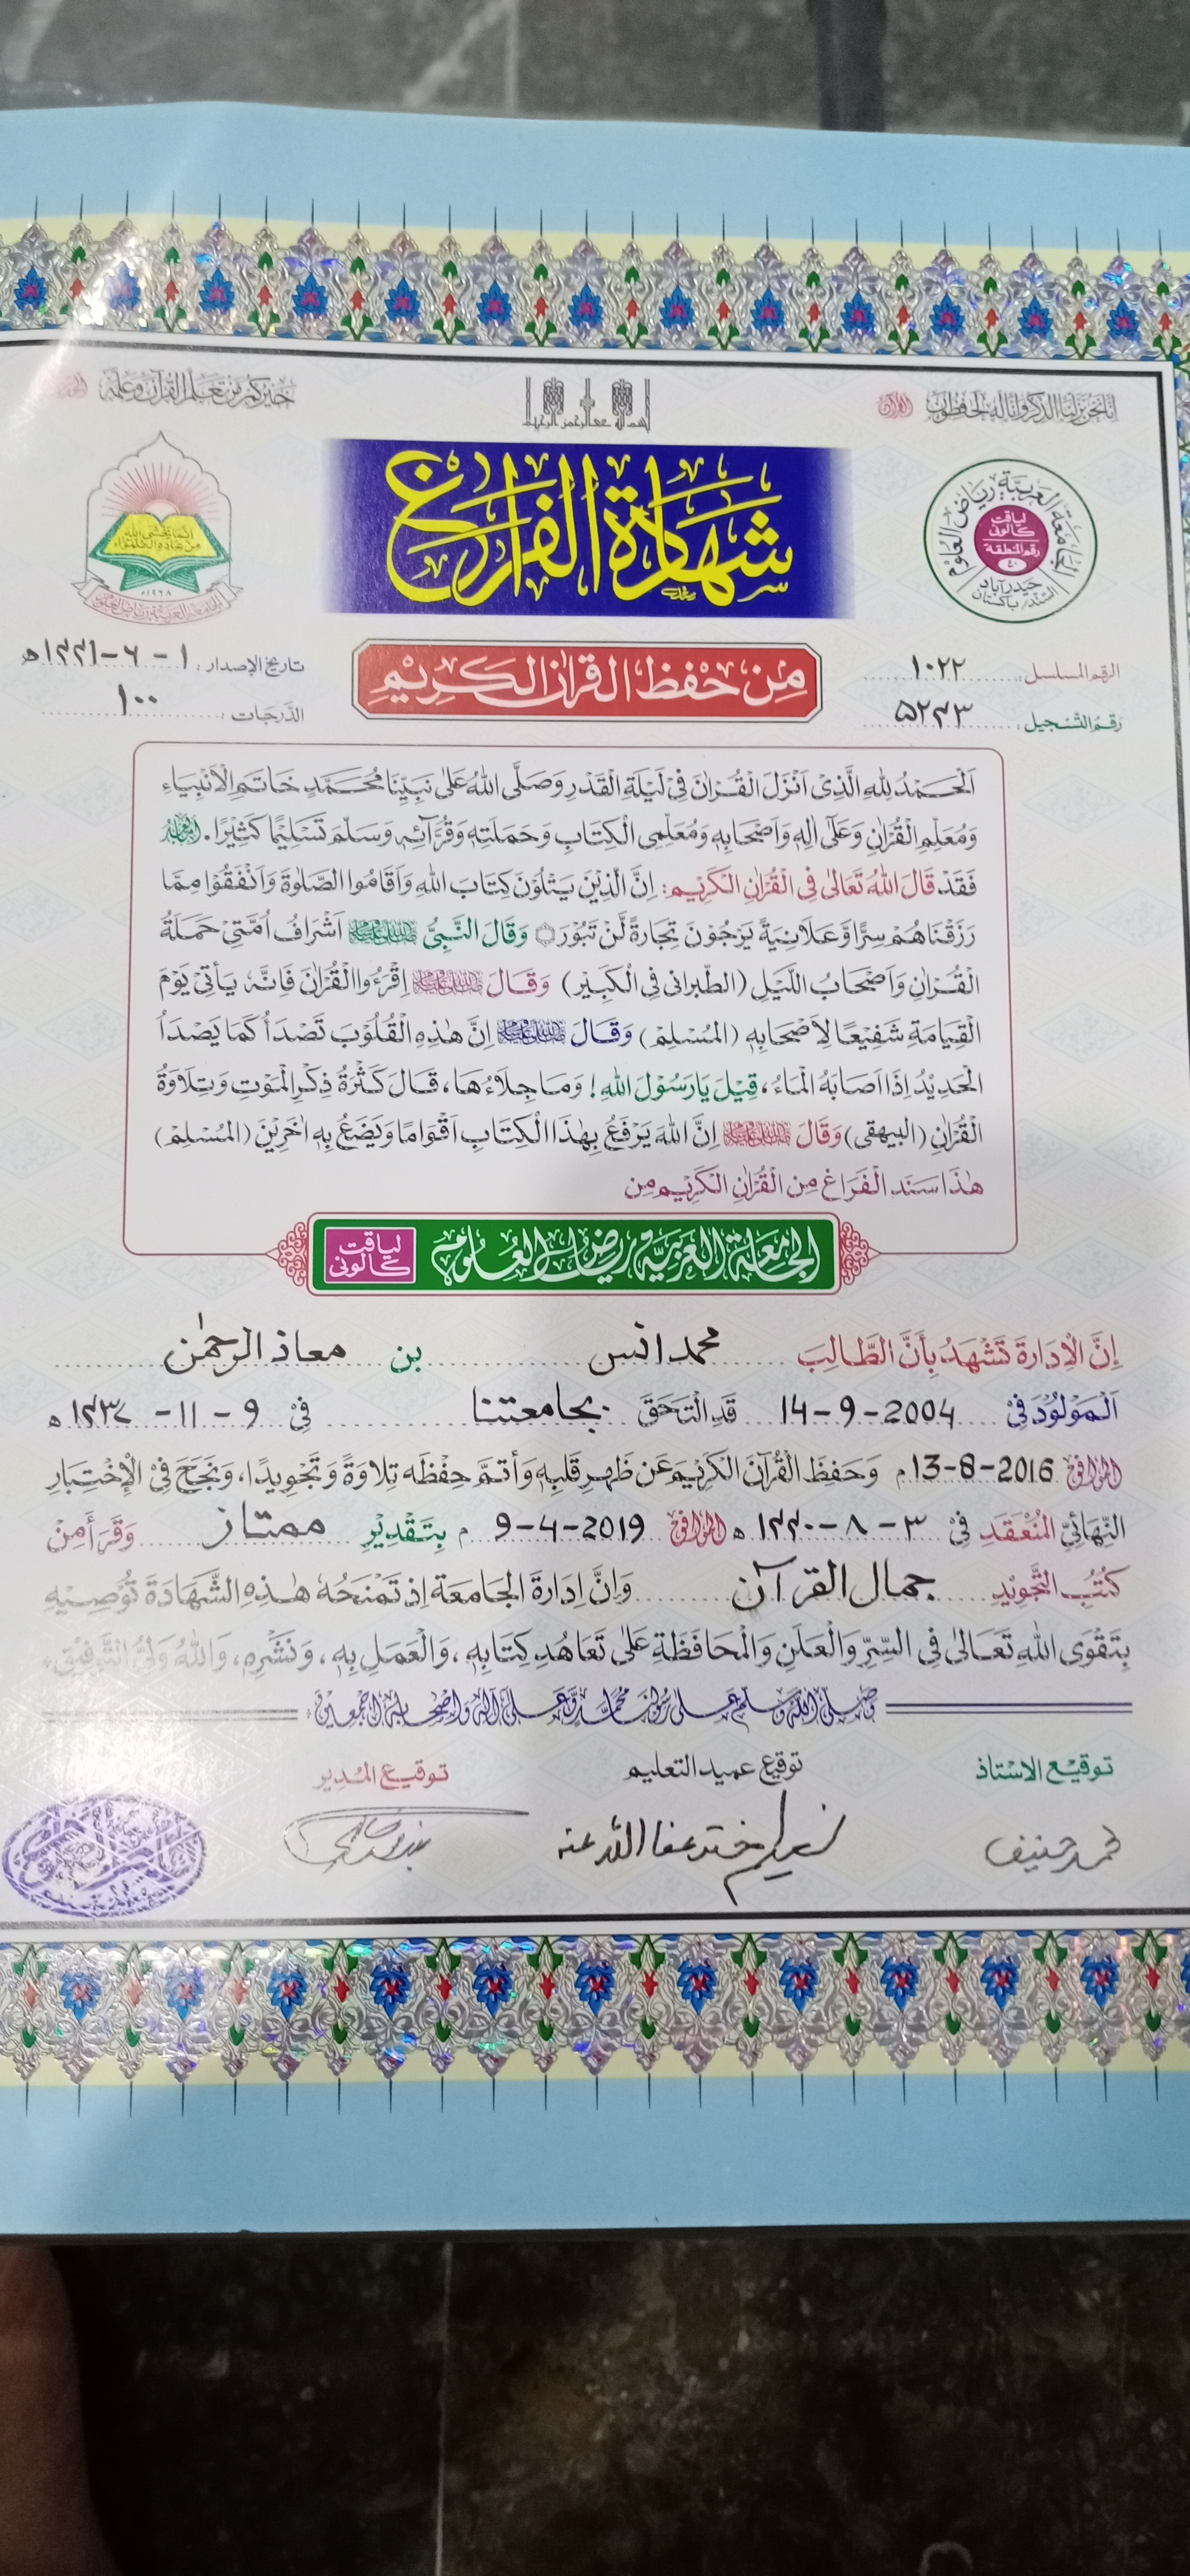 انا نحن نزلنا الذكر وانا له لحفظون (القرآن)
خيركم من تعلم القرآن وعلمه
شهادة الفراغ
من حفظ القرآن الكريم
الجامعة العربية رياض العلوم
لياقت كالونى
رقم المنطقة
حيدرآباد
السند/باكستان
انما يخشى الله
من عباده العلمٰؤا
١٩٦٨ء
الرقم المسلسل: ١٠٢٢
تاريخ الإصدار: ١ - ٦ - ١٤٤١ھ
رقم التسجيل: ٥٢٤٣
الدرجات: ١٠٠
اَلْحَمْدُ لِلّٰهِ الَّذِىْ اَنْزَلَ الْقُرْاٰنَ فِىْ لَيْلَةِ الْقَدْرِ وَصَلَّى اللّٰهُ عَلٰى نَبِيِّنَا مُحَمَّدٍ خَاتَمِ الْاَنْبِيَاءِ
وَمُعَلِّمِ الْقُرْاٰنِ وَعَلٰٓى اٰلِهٖ وَاَصْحَابِهٖ وَمُعَلِّمِى الْكِتَابِ وَحَمَلَتِهٖ وَقُرَّآئِهٖ وَسَلَّمَ تَسْلِيْمًا كَثِيْرًا. اما بعد
فَقَدْ قَالَ اللّٰهُ تَعَالٰى فِى الْقُرْاٰنِ الْكَرِيْمِ: اِنَّ الَّذِيْنَ يَتْلُوْنَ كِتَابَ اللّٰهِ وَاَقَامُوا الصَّلٰوةَ وَاَنْفَقُوْا مِمَّا
رَزَقْنَاهُمْ سِرًّا وَّعَلَانِيَةً يَرْجُوْنَ تِجَارَةً لَّنْ تَبُوْرَ وَقَالَ النَّبِىُّ ﷺ اَشْرَافُ اُمَّتِىْ حَمَلَةُ
الْقُرْاٰنِ وَاَصْحَابُ اللَّيْلِ (الطبرانى فى الكبير) وَقَالَ ﷺ اِقْرَءُوا الْقُرْاٰنَ فَاِنَّهٗ يَأْتِىْ يَوْمَ
الْقِيَامَةِ شَفِيْعًا لِاَصْحَابِهٖ (المسلم) وَقَالَ ﷺ اِنَّ هٰذِهِ الْقُلُوْبَ تَصْدَأُ كَمَا يَصْدَأُ
الْحَدِيْدُ اِذَا اَصَابَهُ الْمَاءُ، قِيْلَ يَارَسُوْلَ اللّٰهِ! وَمَا جِلَاءُهَا، قَالَ كَثْرَةُ ذِكْرِ الْمَوْتِ وَتِلَاوَةُ
الْقُرْاٰنِ (البيهقى) وَقَالَ ﷺ اِنَّ اللّٰهَ يَرْفَعُ بِهٰذَا الْكِتَابِ اَقْوَامًا وَيَضَعُ بِهٖ اٰخَرِيْنَ (المسلم)
هٰذَا سَنَدُ الْفَرَاغِ مِنَ الْقُرْاٰنِ الْكَرِيْمِ مِن
الجامعة العربية رياض العلوم لياقت كالونى
إِنَّ الْإِدَارَةَ تَشْهَدُ بِأَنَّ الطَّالِبَ محمد انس بن معاذ الرحمٰن
اَلْمَوْلُوْدَ فِىْ 14-9-2004 قَدِ الْتَحَقَ بجامعتنا فِىْ ٩ - ١١ - ١٤٣٧ ھ
الموافق 13-8-2016 م وَحَفِظَ الْقُرْآنَ الْكَرِيْمَ عَنْ ظَهْرِ قَلْبِهٖ وَأَتَمَّ حِفْظَهٗ تِلَاوَةً وَتَجْوِيْدًا، وَنَجَحَ فِى الْإِخْتِبَارِ
النِّهَائِىِّ الْمُنْعَقَدِ فِىْ ٣ - ٨ - ١٤٤٠ ھ الموافق 9-4-2019 م بِتَقْدِيْرِ ممتاز وَقَرَأَ مِنْ
كُتُبِ التَّجْوِيْدِ جمال القرآن وَإِنَّ إِدَارَةَ الْجَامِعَةِ إِذْ تَمْنَحُهٗ هٰذِهِ الشَّهَادَةَ تُوْصِيْهِ
بِتَقْوَى اللّٰهِ تَعَالٰى فِى السِّرِّ وَالْعَلَنِ وَالْمُحَافَظَةِ عَلٰى تَعَاهُدِ كِتَابِهٖ، وَالْعَمَلِ بِهٖ، وَنَشْرِهٖ، وَاللّٰهُ وَلِىُّ التَّوْفِيْقِ
وصلى الله وسلم على رسولنا محمد وعلى آله واصحابه اجمعين
توقيع الاستاذ
توقيع عميد التعليم
توقيع المدير
محمد حنيف
عفا الله عنه